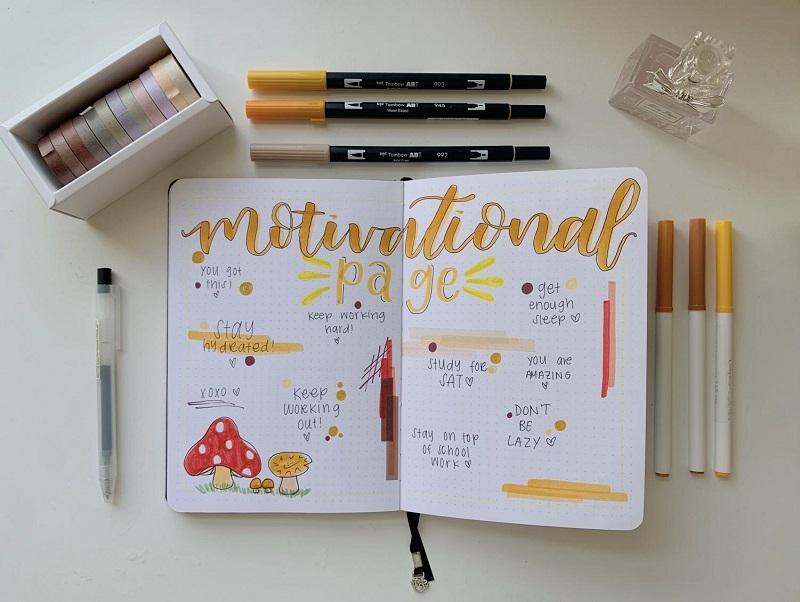 Tombow ABT 993
Tombow ABT 946
Tombow ABT 992
motivational
page
you got
this!
stay
hydrated!
xoxo
keep working
hard!
keep
working
out!
get
enough
sleep
study for
SAT
you are
AMAZING
DON'T
BE
LAZY
stay on top
of school
work